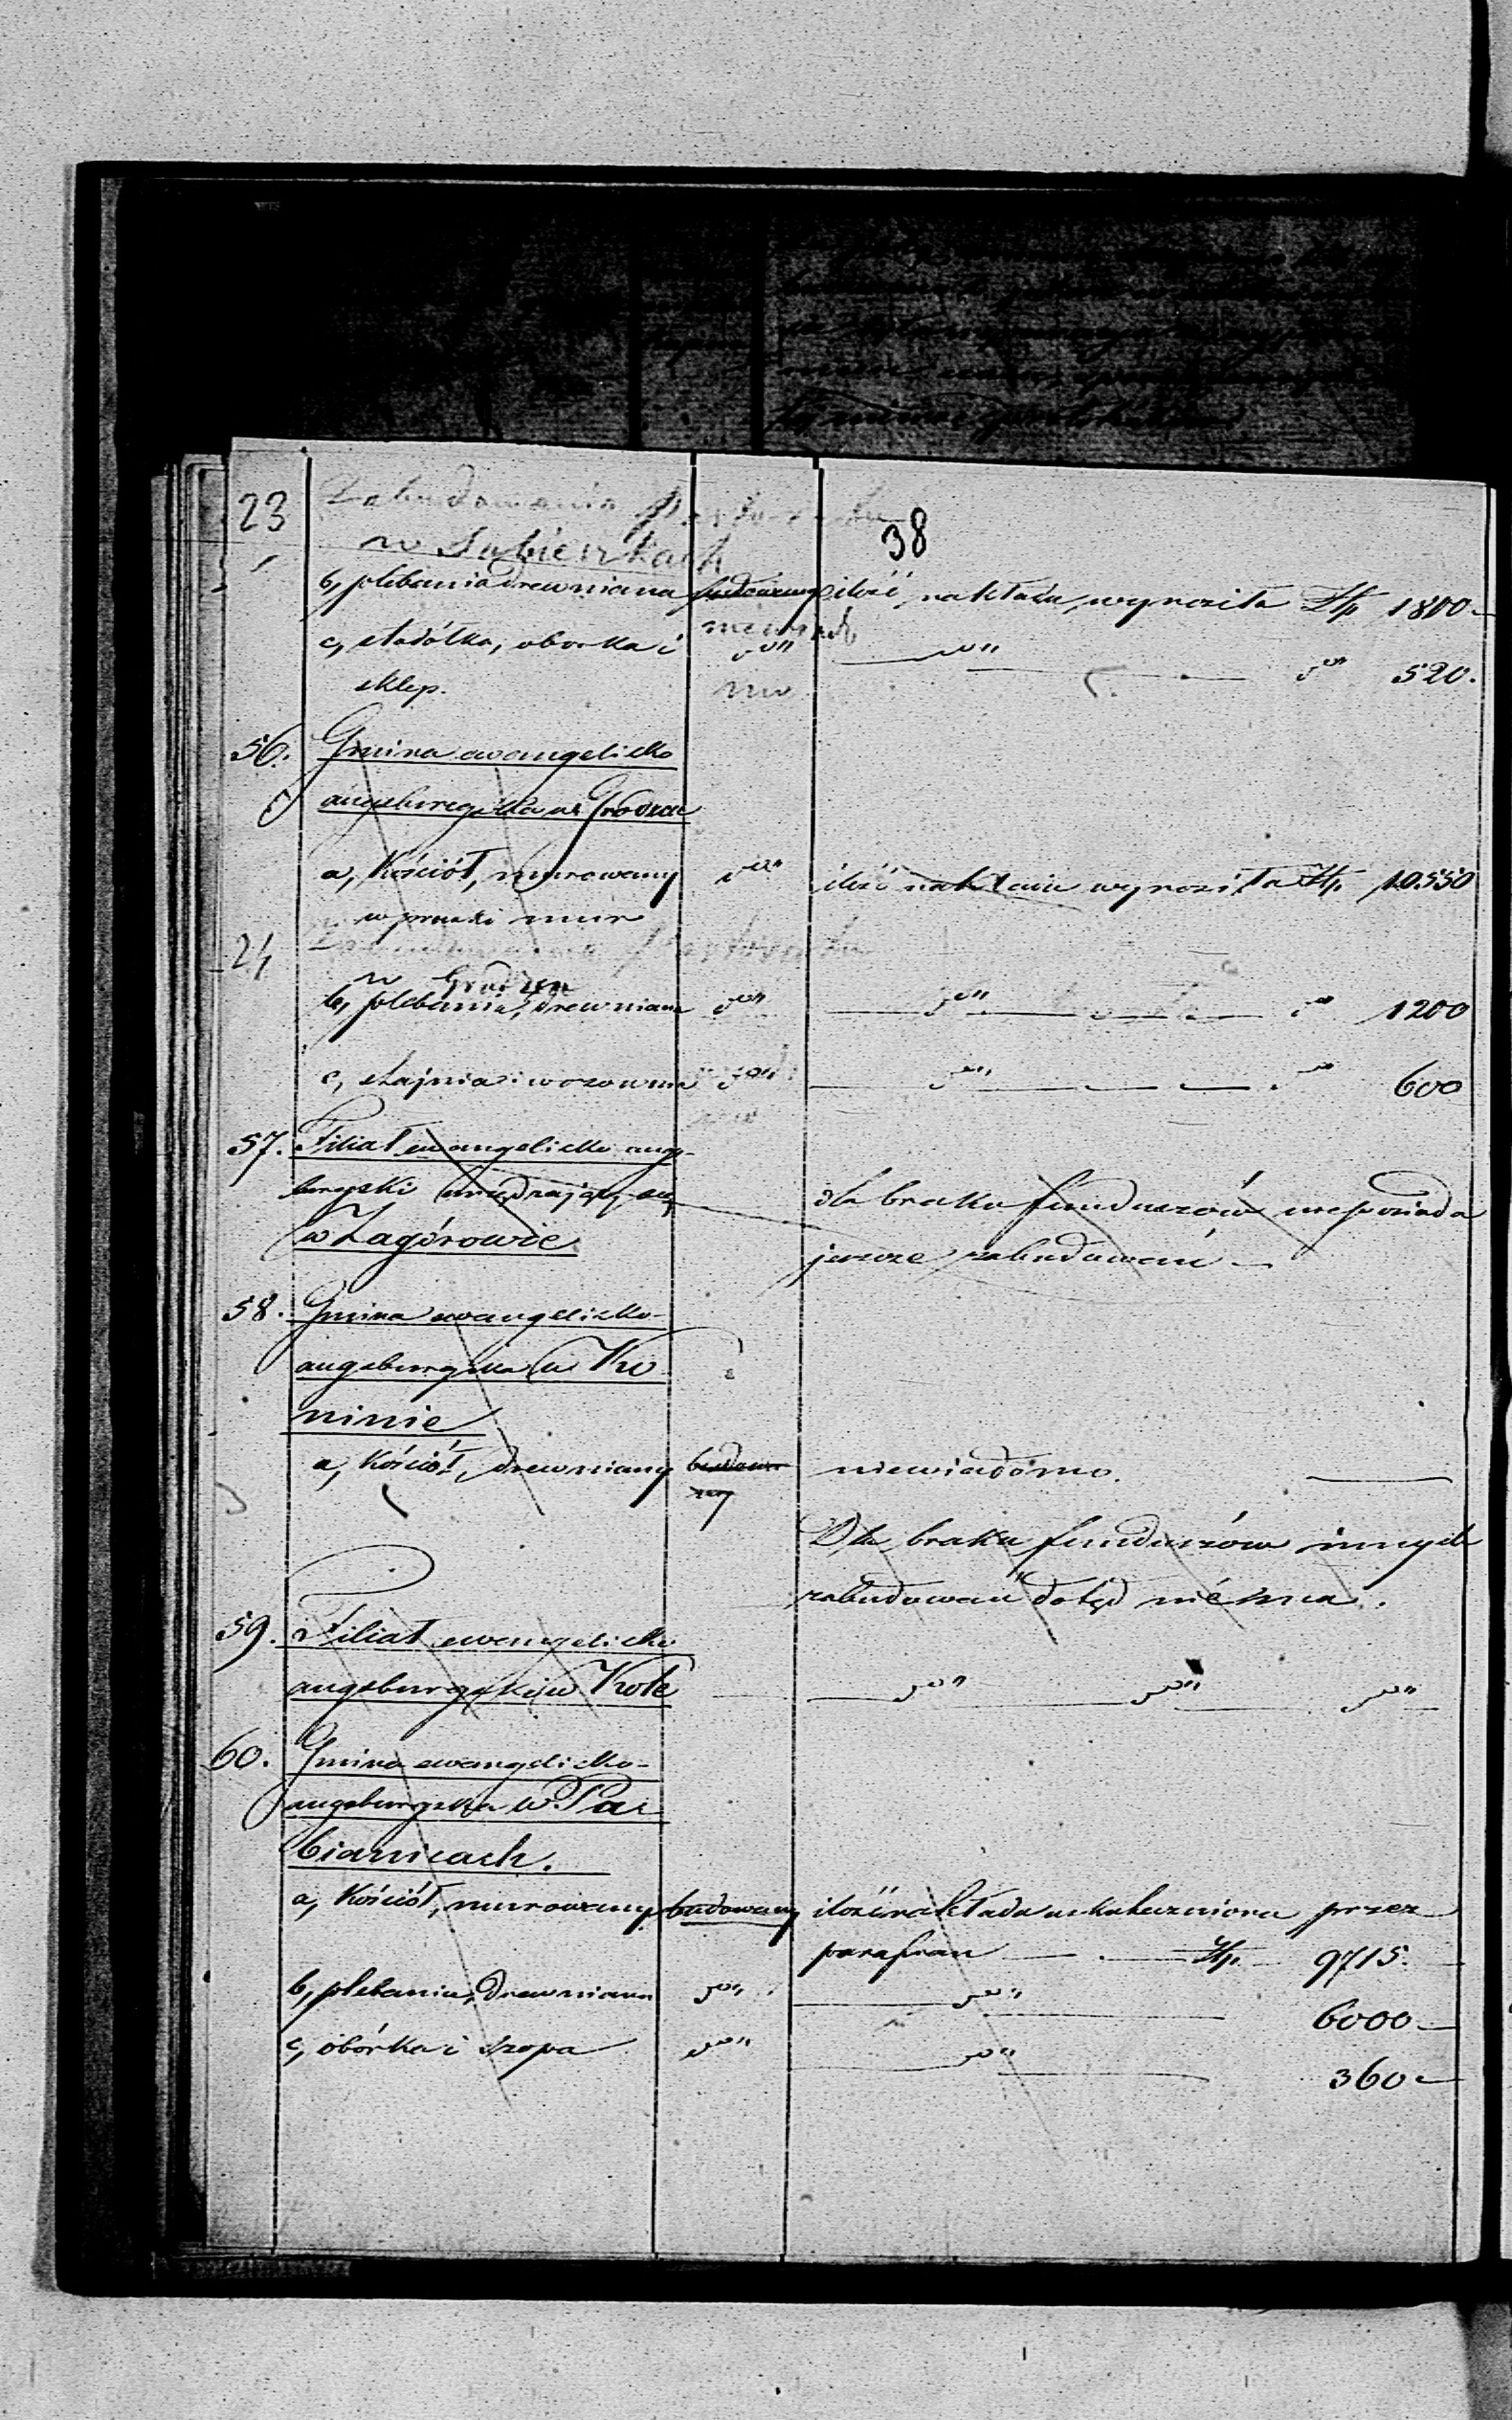 23 Zabudowania
38
w Subieszkach
b, plebania drewniana ilość nakładu wynosiła Złp 1800
c, stodółka, oborka i d° d° d° 520.
sklep.
56. Gmina ewangelicko
augsburgska w Grodzcu
a, Kościół, murowany d° ilość nakładu wynosiła Złp. 10.550
w pruski mur
24
w Grodzcu
b, plebania, drewniana d° d° d° 1200
c, stajnia i wozownia d° d° d° 600
57. Filiał ewangelicko augs-
burgski urządzający się dla braku funduszów nieposiada
w Zagórowie jeszcze zabudowań
58. Gmina ewangelicko-
augsburgska w Ko
ninie
a, Kościół, drewniany budowany niewiadomo.
Dla braku funduszów innych
zabudowań dotąd niéma.
59. Filiał ewangelicko
augsburgski w Kole d° d° d°
60. Gmina ewangelicko-
augsburgska w Pa
bianicach.
a, Kościół, murowany budowany ilość nakładu uskutecznioną przez
parafian Złp. 9715.
b, plebania, drewniana d° d° 6000
c, obórka i szopa d° d° 360